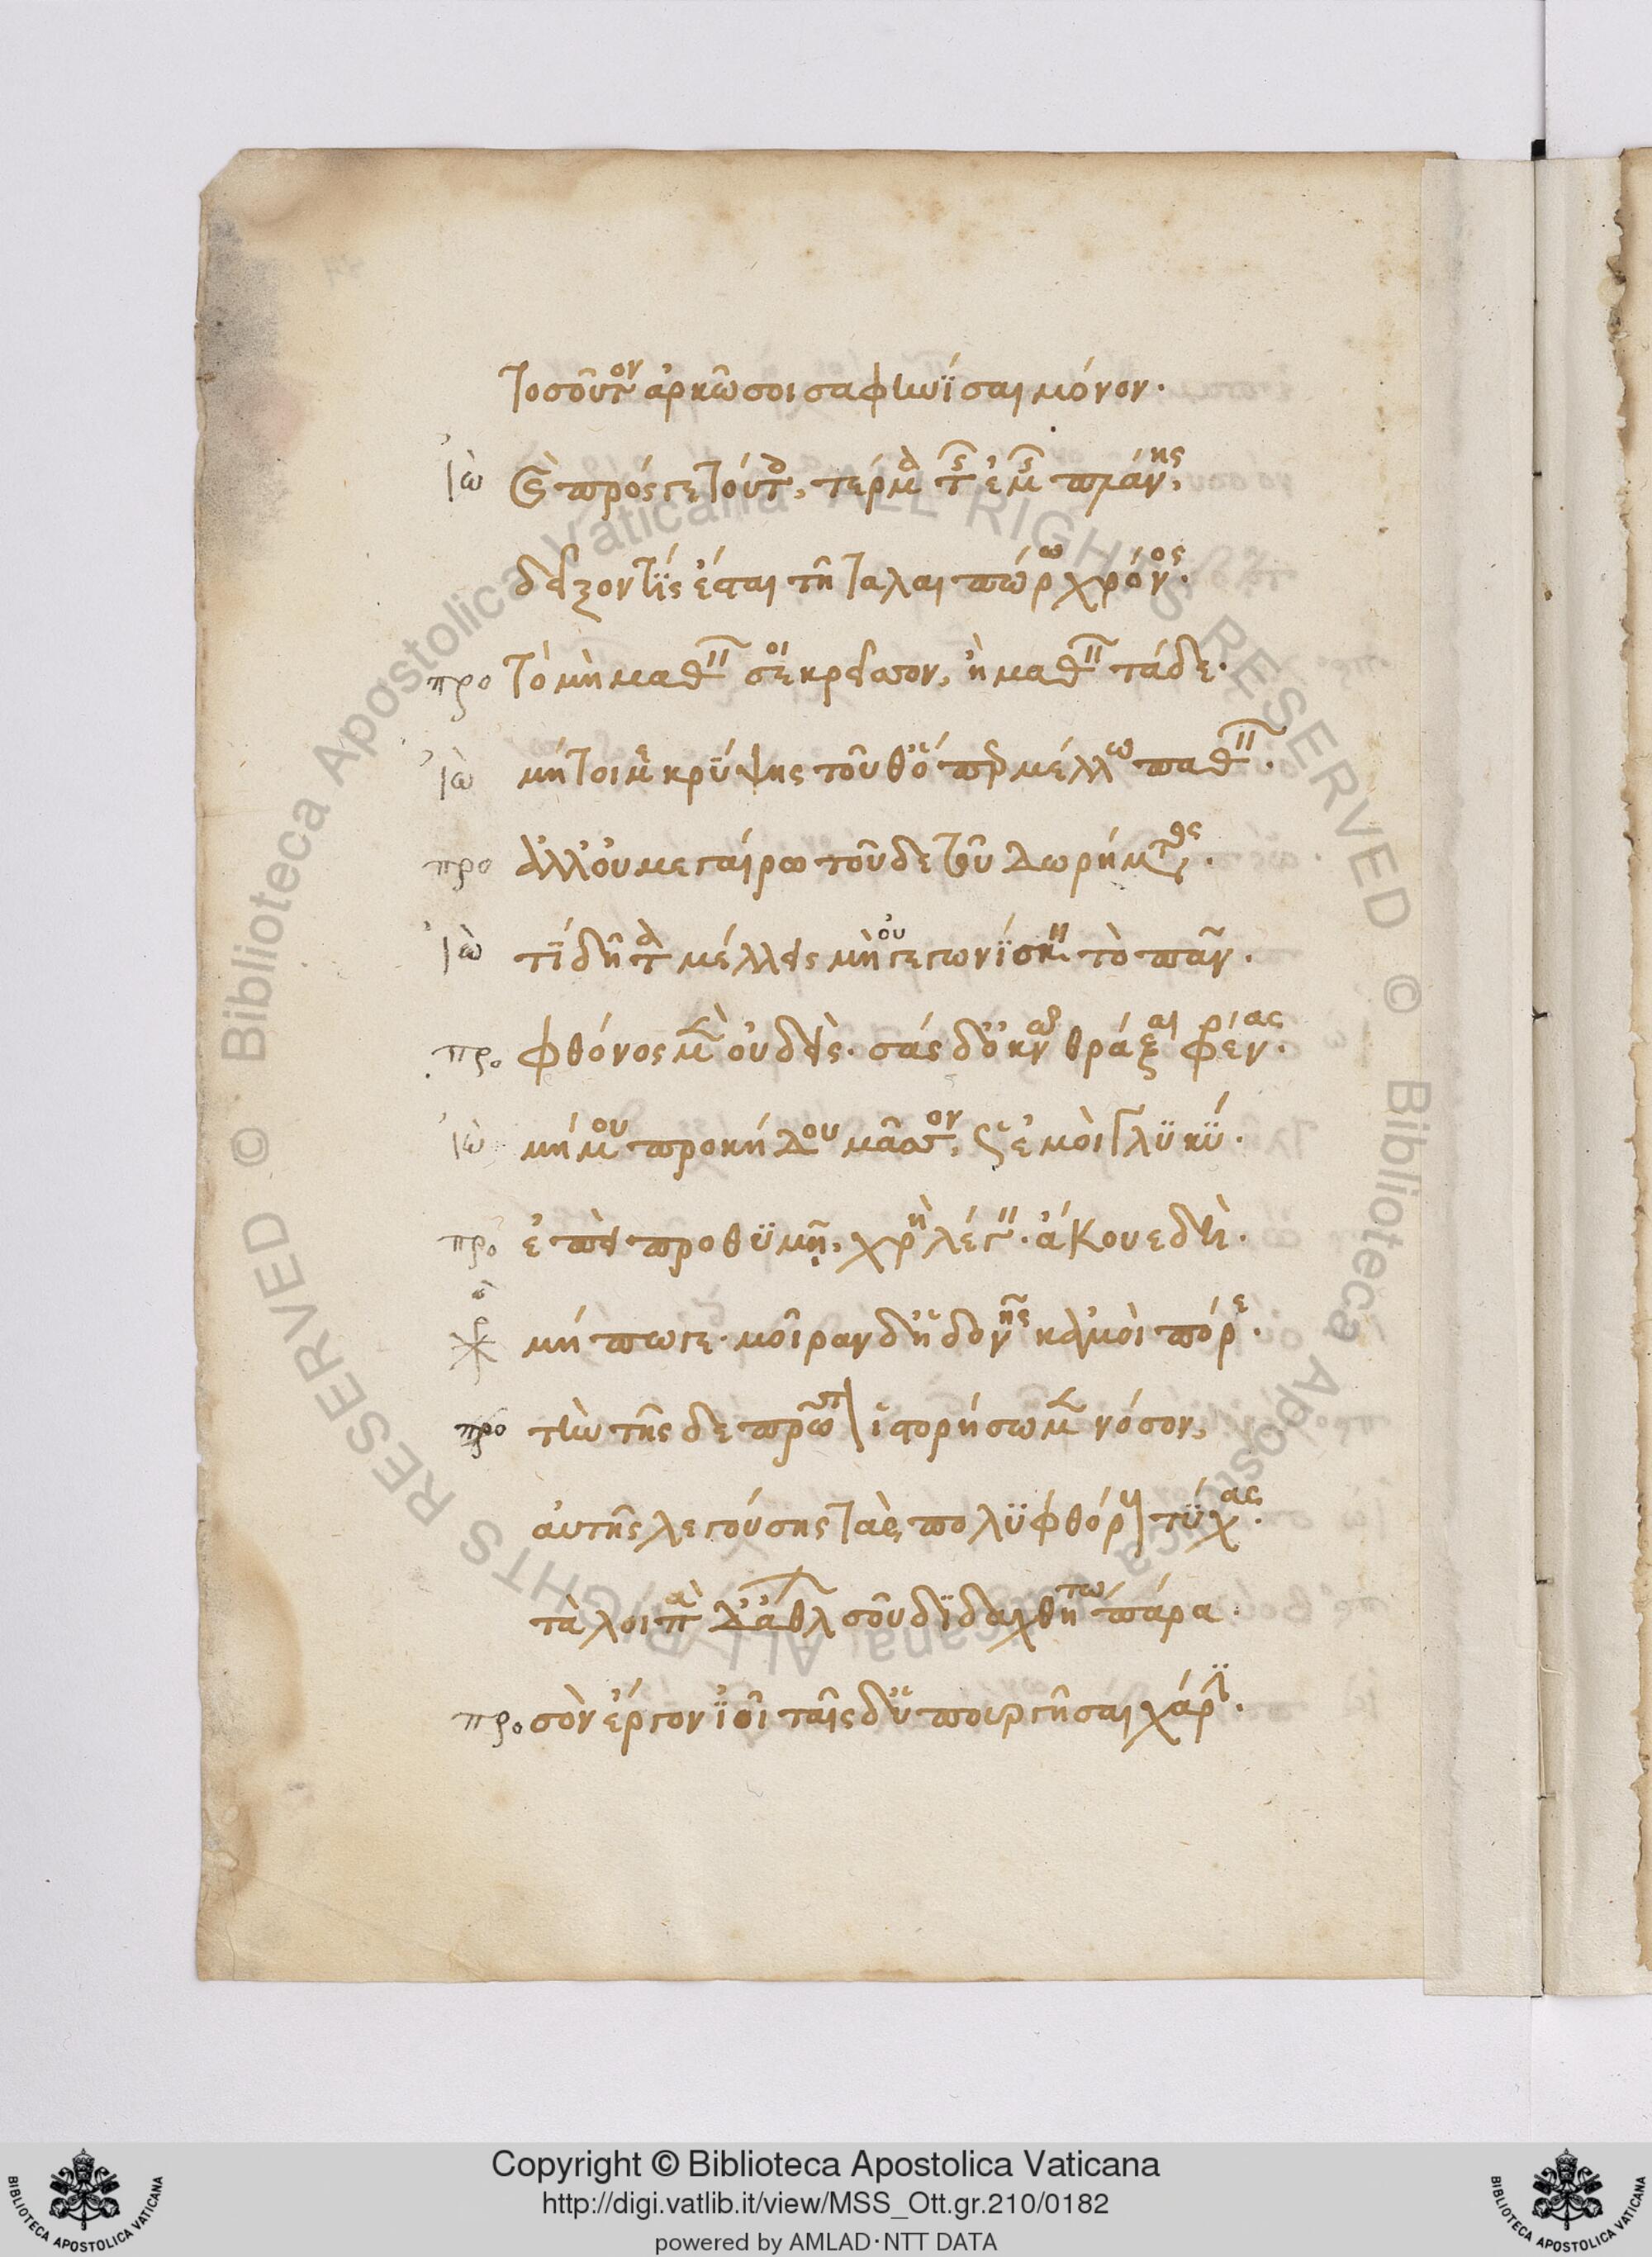 τοσοῦτον ἀρκῶ σοι σαφηνίσαι μόνον.
Ἰὼ καὶ πρός γε τούτοις, τέρμα τῆς ἐμῆς πλάνης,
δεῖξον τίς ἔσται τῆ ταλαι πώρω χρόνος.
προ τὸ μὴ μαθεῖν σοι κρεῖσσον, ἢ μαθεῖν τάδε.
Ἰὼ μήτοι με κρύψης τοῦθ' ὅπερ μέλλω παθεῖν.
προ ἀλλ' οὐ μεγαίρω τοῦδέ του δωρήματος.
Ἰὼ τί δῆτα μέλλεις μὴ οὐ γεγωνίσκειν τὸ πᾶν.
προ φθόνος μὲν οὐδείς. σὰς δ' ὀκνῶ θράξαι φρένας.
Ἰὼ μή μου προκήδου μᾶσσον, ὡς ἐμοὶ γλυκύ.
προ ἐπεὶ προθυμῆ, χρὴ λέγειν. ἄκουε δή.
χο μήπω γε. μοῖραν δ' ἡδονῆς κἀμοὶ πόρε.
προ τὴν τῆσδε πρῶτον ἱστορήσωμεν νόσον,
αὐτῆς λεγούσης τὰς πολυφθόρους τύχας.
τὰ λοιπὰ δ' ἄθλων σοῦ διδαχθήτω πάρα.
προ σὸν ἔργον ἰοῖ ταῖσδ' ὑπουργῆσαι χάριν.
Copyright © Biblioteca Apostolica Vaticana
http://digi.vatlib.it/view/MSS_Ott.gr.210/0182
powered by AMLAD·NTT DATA
BIBLIOTECA APOSTOLICA VATICANA
BIBLIOTECA APOSTOLICA VATICANA